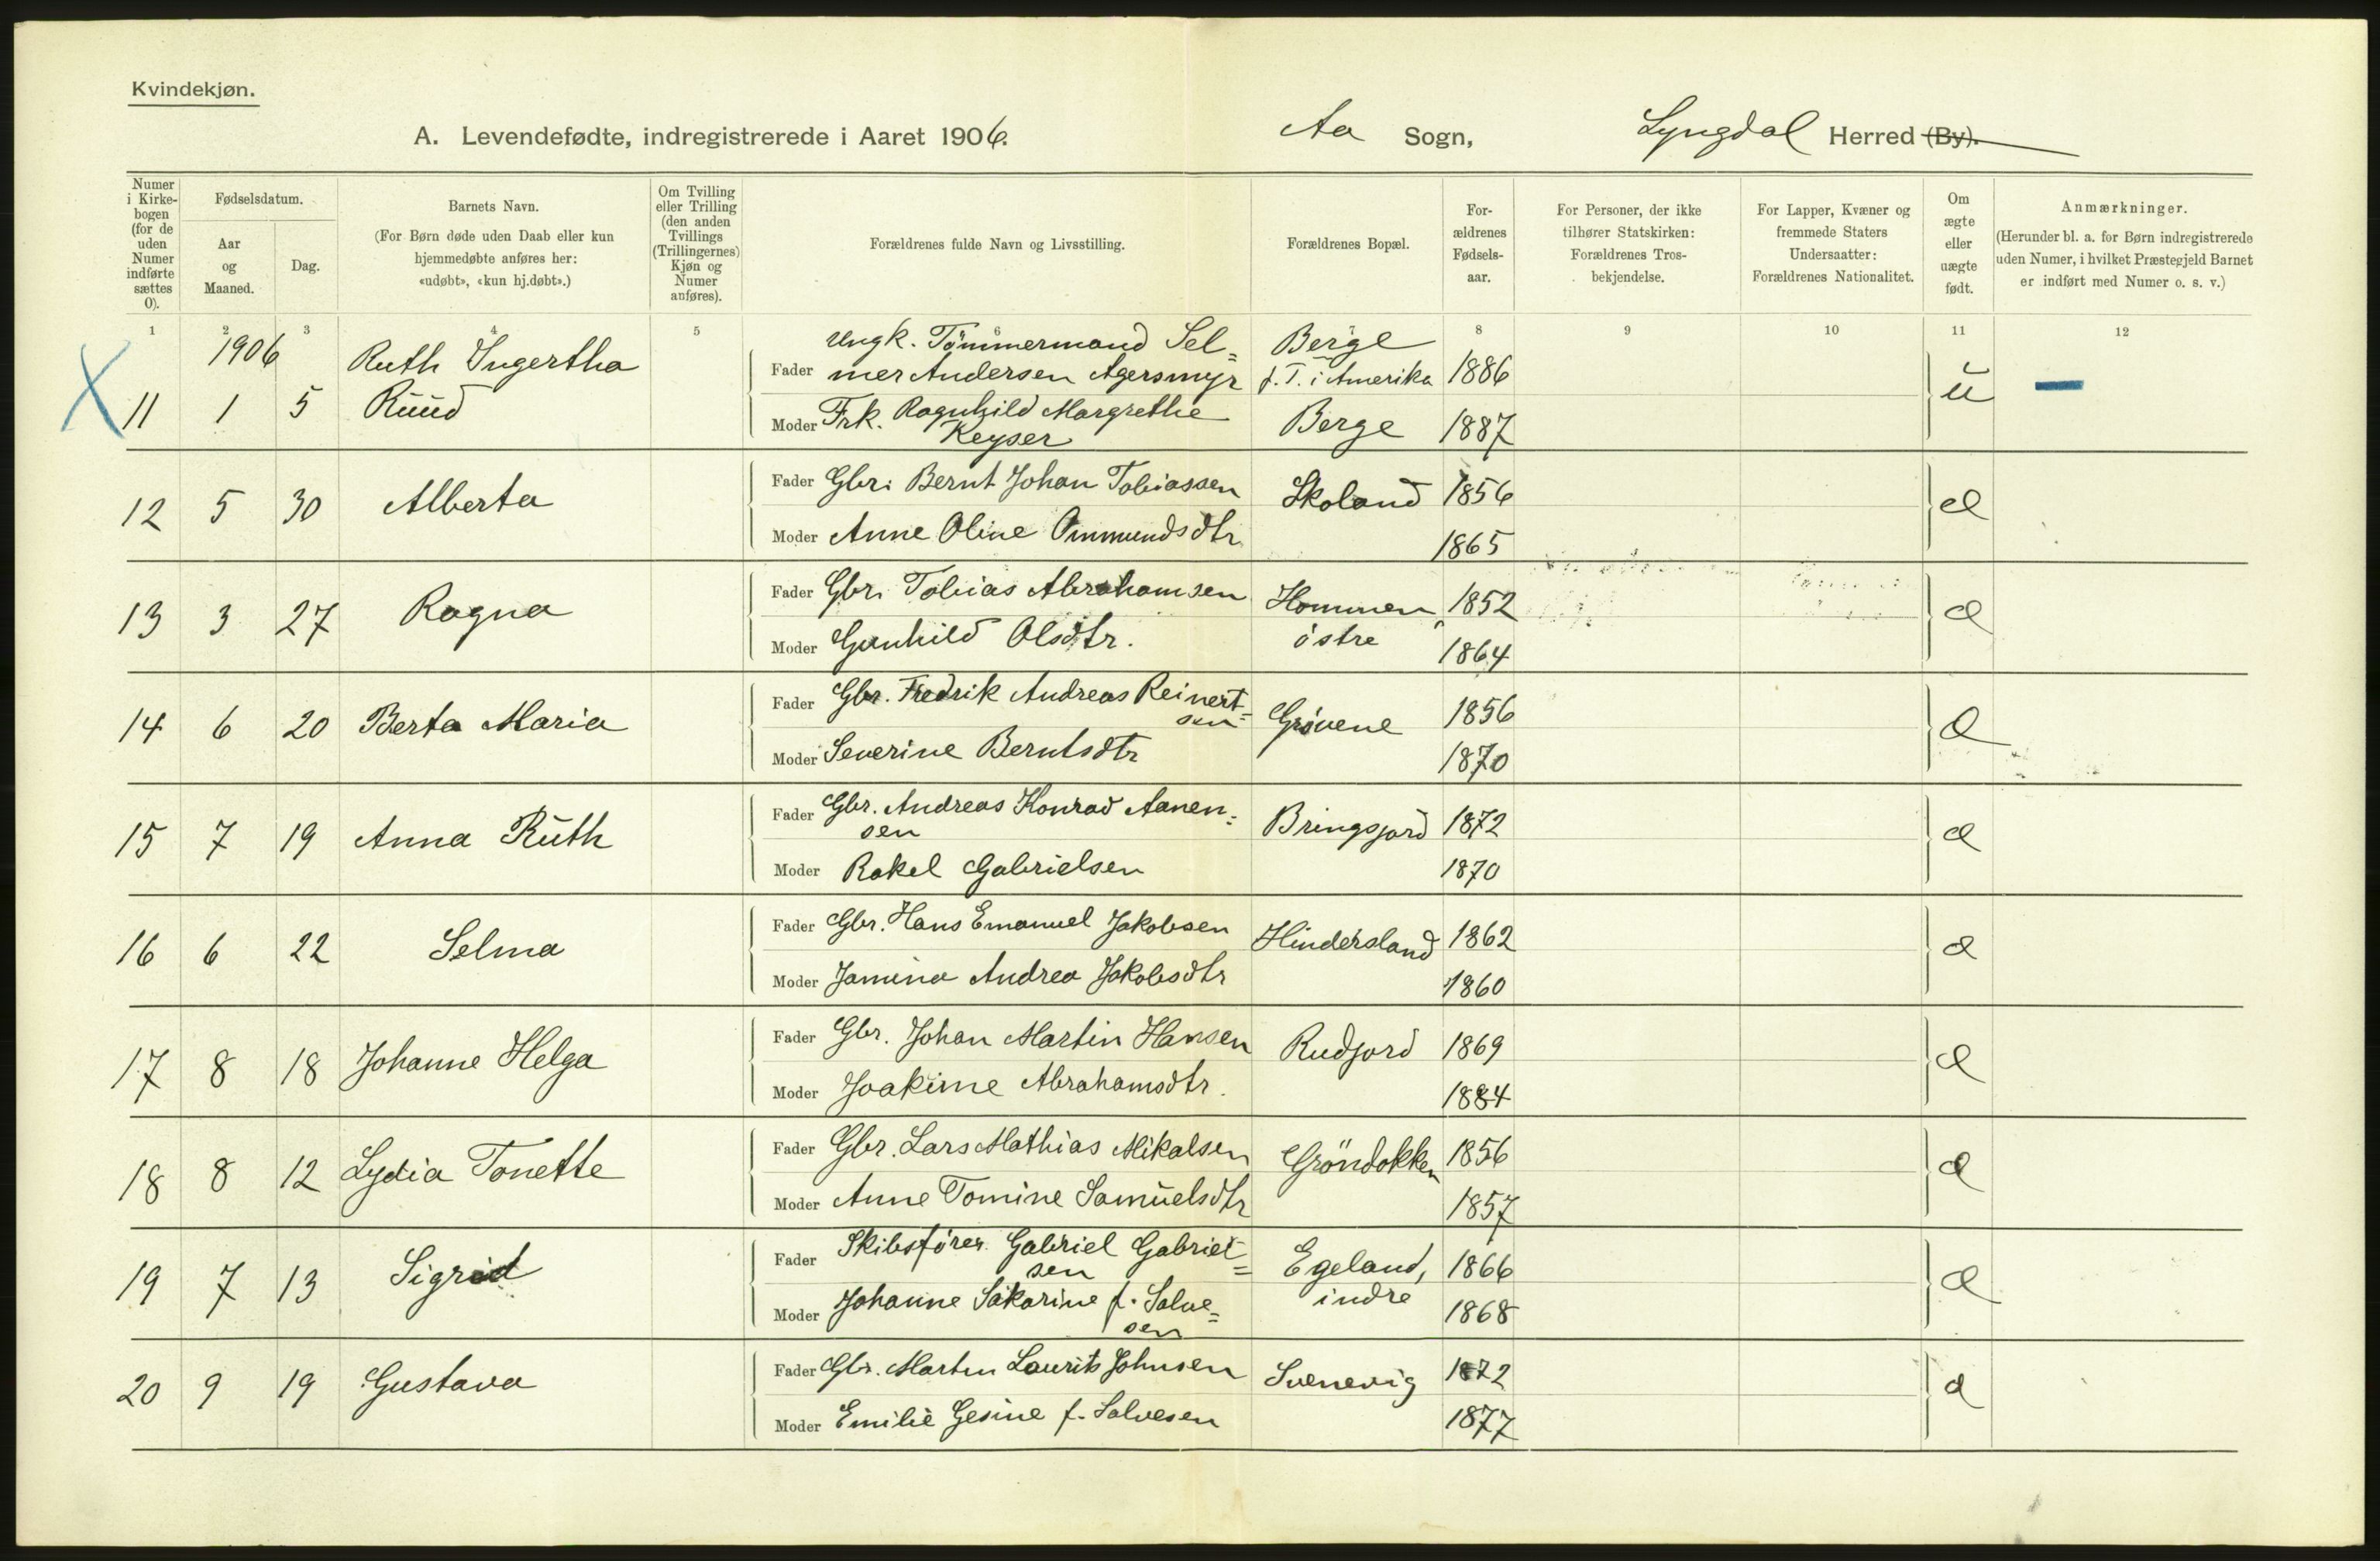 Kvindekjøn.
A. Levendefødte, indregistrerede i Aaret 1906. Aa Sogn, Lyngdal Herred (By).
Numer i Kirkebogen (for de uden Numer indførte sættes 0).
Fødselsdatum.
Aar og Maaned.
Dag.
Barnets Navn.
(For Børn døde uden Daab eller kun hjemmedøbte anføres her: «udøbt», «kun hj.døbt».)
Om Tvilling eller Trilling (den anden Tvillings (Trillingernes) Kjøn og Numer anføres).
Forældrenes fulde Navn og Livsstilling.
Forældrenes Bopæl.
Forældrenes Fødselsaar.
For Personer, der ikke tilhører Statskirken: Forældrenes Trosbekjendelse.
For Lapper, Kvæner og fremmede Staters Undersaatter: Forældrenes Nationalitet.
Om ægte eller uægte født.
Anmærkninger.
(Herunder bl. a. for Børn indregistrerede uden Numer, i hvilket Præstegjeld Barnet er indført med Numer o. s. v.)
1 2 3 4 5 6 7 8 9 10 11 12
1906
X 11 1 5 Ruth Ingertha Ruud
Fader Ungk. Tömmermand Sel=
mer Andersen Agersmyr Berge f. T. i Amerika 1886 u —
Moder Frk. Ragnhild Margrethe
Keyser Berge 1887
12 5 30 Alberta
Fader Gbr. Bernt Johan Tobiassen Skoland 1856 æ
Moder Anne Oline Ommundsdtr 1865
13 3 27 Ragna
Fader Gbr. Tobias Abrahamsen Hommen, østre 1852 æ
Moder Gunhild Olsdtr. 1864
14 6 20 Berta Maria
Fader Gbr. Fredrik Andreas Reinert=
sen Grövene 1856 æ
Moder Severine Berntsdtr 1870
15 7 19 Anna Ruth
Fader Gbr. Andreas Konrad Aanen=
sen Bringsjord 1872 æ
Moder Rakel Gabrielsen 1870
16 6 22 Selma
Fader Gbr. Hans Emanuel Jakobsen Hindersland 1862 æ
Moder Jamina Andrea Jakobsdtr 1860
17 8 18 Johanne Helga
Fader Gbr. Johan Martin Hansen Rudjord 1869 æ
Moder Joakime Abrahamsdtr. 1884
18 8 12 Lydia Tonette
Fader Gbr. Lars Mathias Mikalsen Gröndokken 1856 æ
Moder Anne Tomine Samuelsdtr 1857
19 7 13 Sigrid
Fader Skibsfører Gabriel Gabriel=
sen Egeland, indre 1866 æ
Moder Johanne Sakarine f. Salve=
sen 1868
20 9 19 Gustava
Fader Gbr. Martin Laurits Johnsen Svenevig 1872 æ
Moder Emilie Gesine f. Salvesen 1877